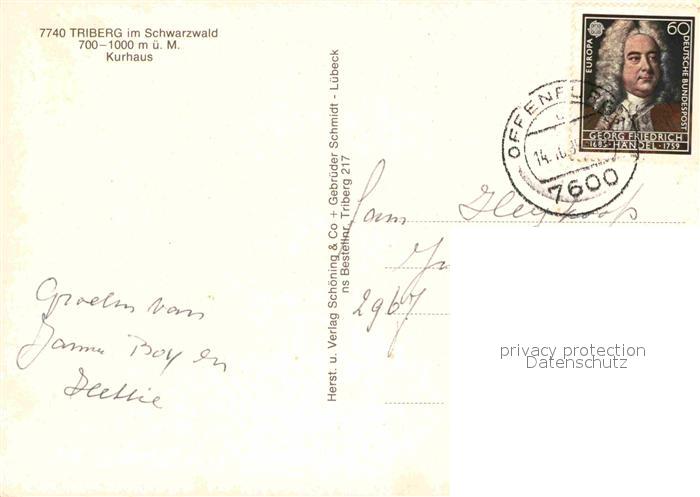 7740 TRIBERG im Schwarzwald
700–1000 m ü. M.
Kurhaus
Groeten van
Janna Boy en
Hettie
Herst. u. Verlag Schöning & Co + Gebrüder Schmidt - Lübeck
ns Bestellnr. Triberg 217
EUROPA
60
DEUTSCHE BUNDESPOST
GEORG FRIEDRICH
1685 HÄNDEL 1759
OFFENBURG
14.
7600
Fam
2967
privacy protection
Datenschutz